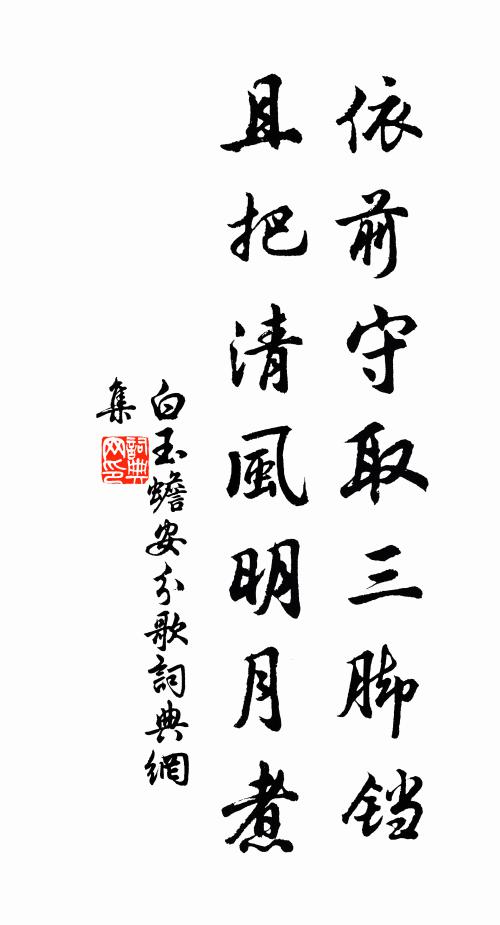 依前守取三脚铛
且把清風明月煮
白玉蟾安分歌詞典網
集
詞典网印